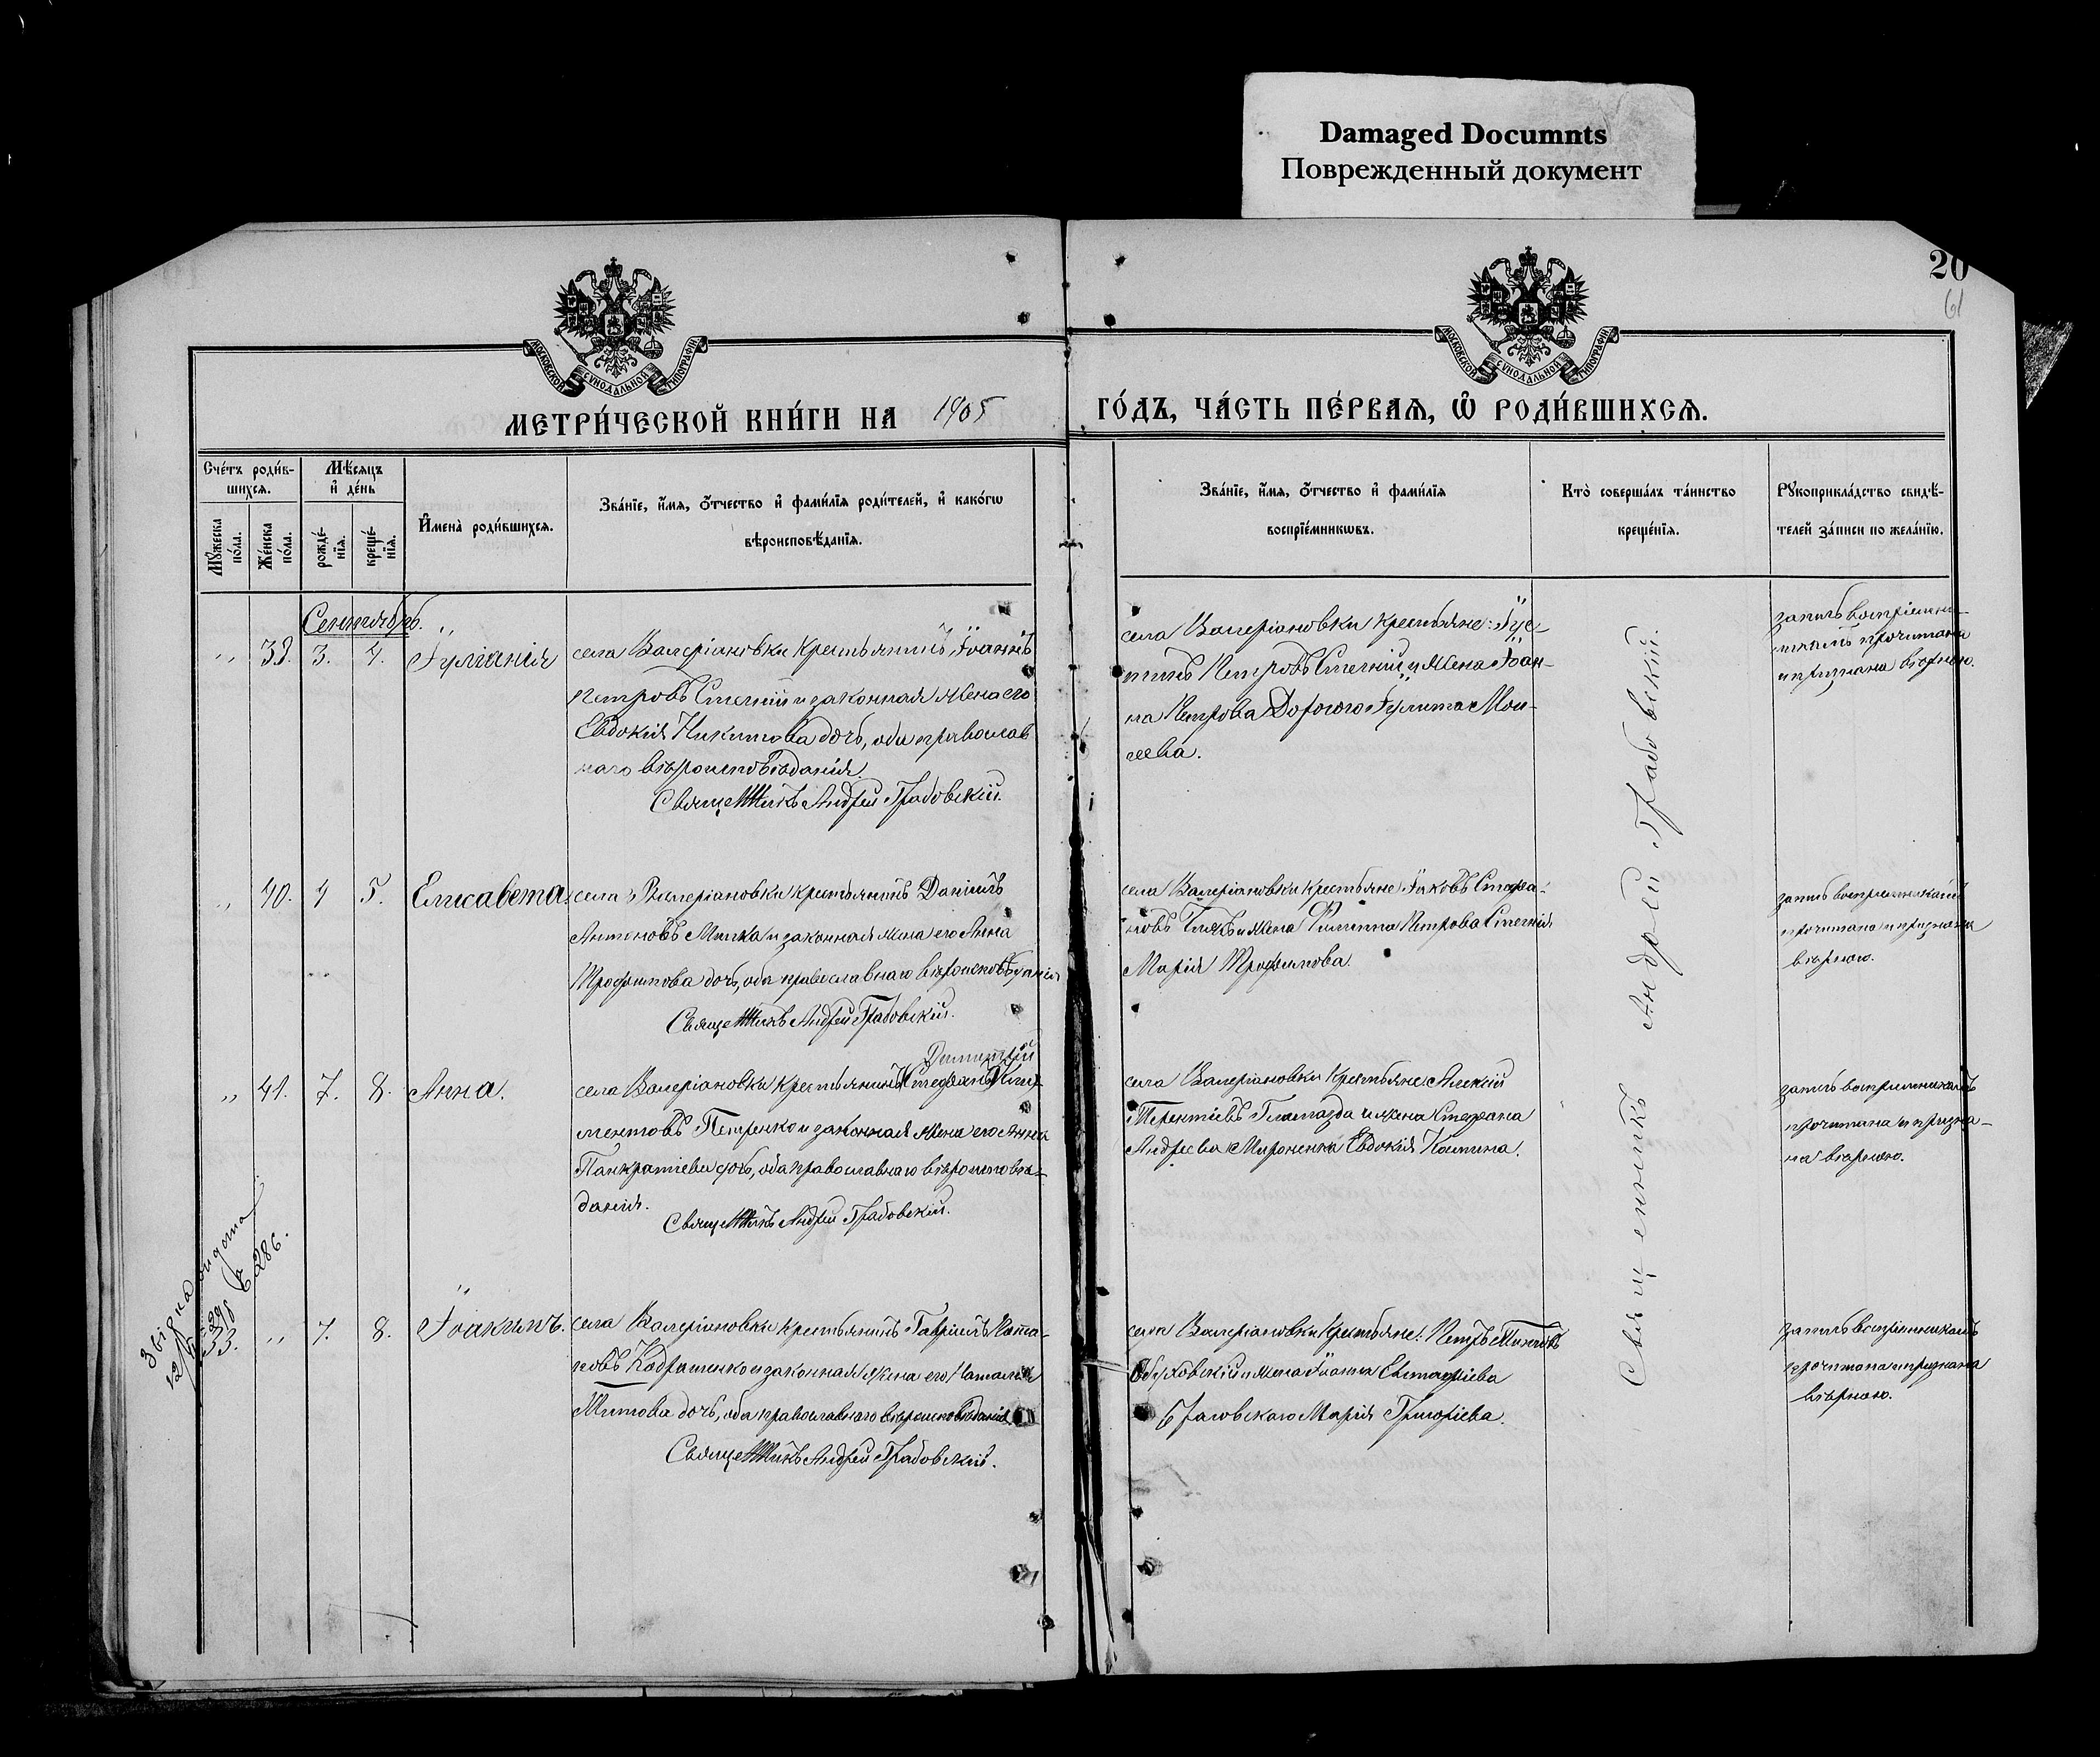 Damaged Documnts
Поврежденный документ
20
61
МОСКОВСКОЙ СѴНОДАЛЬНОЙ ТИПОГРАФІИ
МОСКОВСКОЙ СѴНОДАЛЬНОЙ ТИПОГРАФІИ
МЕТРИ́ЧЕСКОЙ КНИ́ГИ НА 1905 ГО́ДЪ, ЧА́СТЬ ПЕ́РВАЯ, Ѡ РОДИ́ВШИХСЯ.
Сче́тъ роди́в-
шихся.
Мꙋ́жеска по́ла.
Же́нска по́ла.
Мѣ́сяцъ
и҆ де́нь
рожде́-
нїя.
креще́-
нїя.
И҆мена̀ роди́вшихся.
Зва́нїе, и҆́мя, ѻ҆́тчество и҆ фами́лїя роди́телей, и҆ како́гѡ
вѣроисповѣ́данїя.
Зва́нїе, и҆́мя, ѻ҆́тчество и҆ фами́лїя
воспрїе́мникѡвъ.
Кто̀ соверша́лъ та́инство
креще́нїя.
Рꙋкоприкла́дство свидѣ́-
телей за́писи по жела́нїю.
Сентябрь.
„ 39. 3. 4. Іуліанія
села Валеріановки крестьянинъ Іоаннъ
Петровъ и законная жена его
Евдокія Никитова дочь, оба православ
наго вѣроисповѣданія.
Священникъ Андрей Грабовскій.
села Валеріановки крестьяне: Іус-
тинъ Петровъ и жена Іоан-
на Петрова Дорогого Іулита Мои-
сеева.
запись воспріемни-
камъ прочитана
и признана вѣрною.
„ 40. 4 5. Елисавета
села Валеріановки крестьянинъ Даніилъ
Антоновъ и законная жена его Анна
Трофимова дочь, оба православнаго вѣроисповѣданія
Священникъ Андрей Грабовскій.
села Валеріановки крестьяне: Іаковъ Стефа-
новъ и жена Филиппа Петрова
Марія Трофимова.
запись воспріемникамъ
прочитана и признана
вѣрною.
Димитрій
„ 41. 7. 8. Анна.
села Валеріановки крестьянинъ Стефанъ Кли-
ментовъ Петренко и законная жена его Анна
Панкратіева дочь, оба православнаго вѣроисповѣ-
данія.
Священникъ Андрей Грабовскій.
села Валеріановки крестьяне: Алексій
Терентіевъ и жена Стефана
Андреева Мироненка Евдокія
запись воспріемникамъ
прочитана и призна-
на вѣрною.
33. „ 7. 8. Іоакимъ.
села Валеріановки крестьянинъ Гавріилъ
и законная жена его Наталія
Титова дочь, оба православнаго вѣроисповѣданія.
Священникъ Андрей Грабовскій.
села Валеріановки крестьяне: Петръ
и жена Іоанна Евстафіева
Марія Григоріева.
запись воспріемникамъ
прочитана и признана
вѣрною.
Священникъ Андрей Грабовскій.